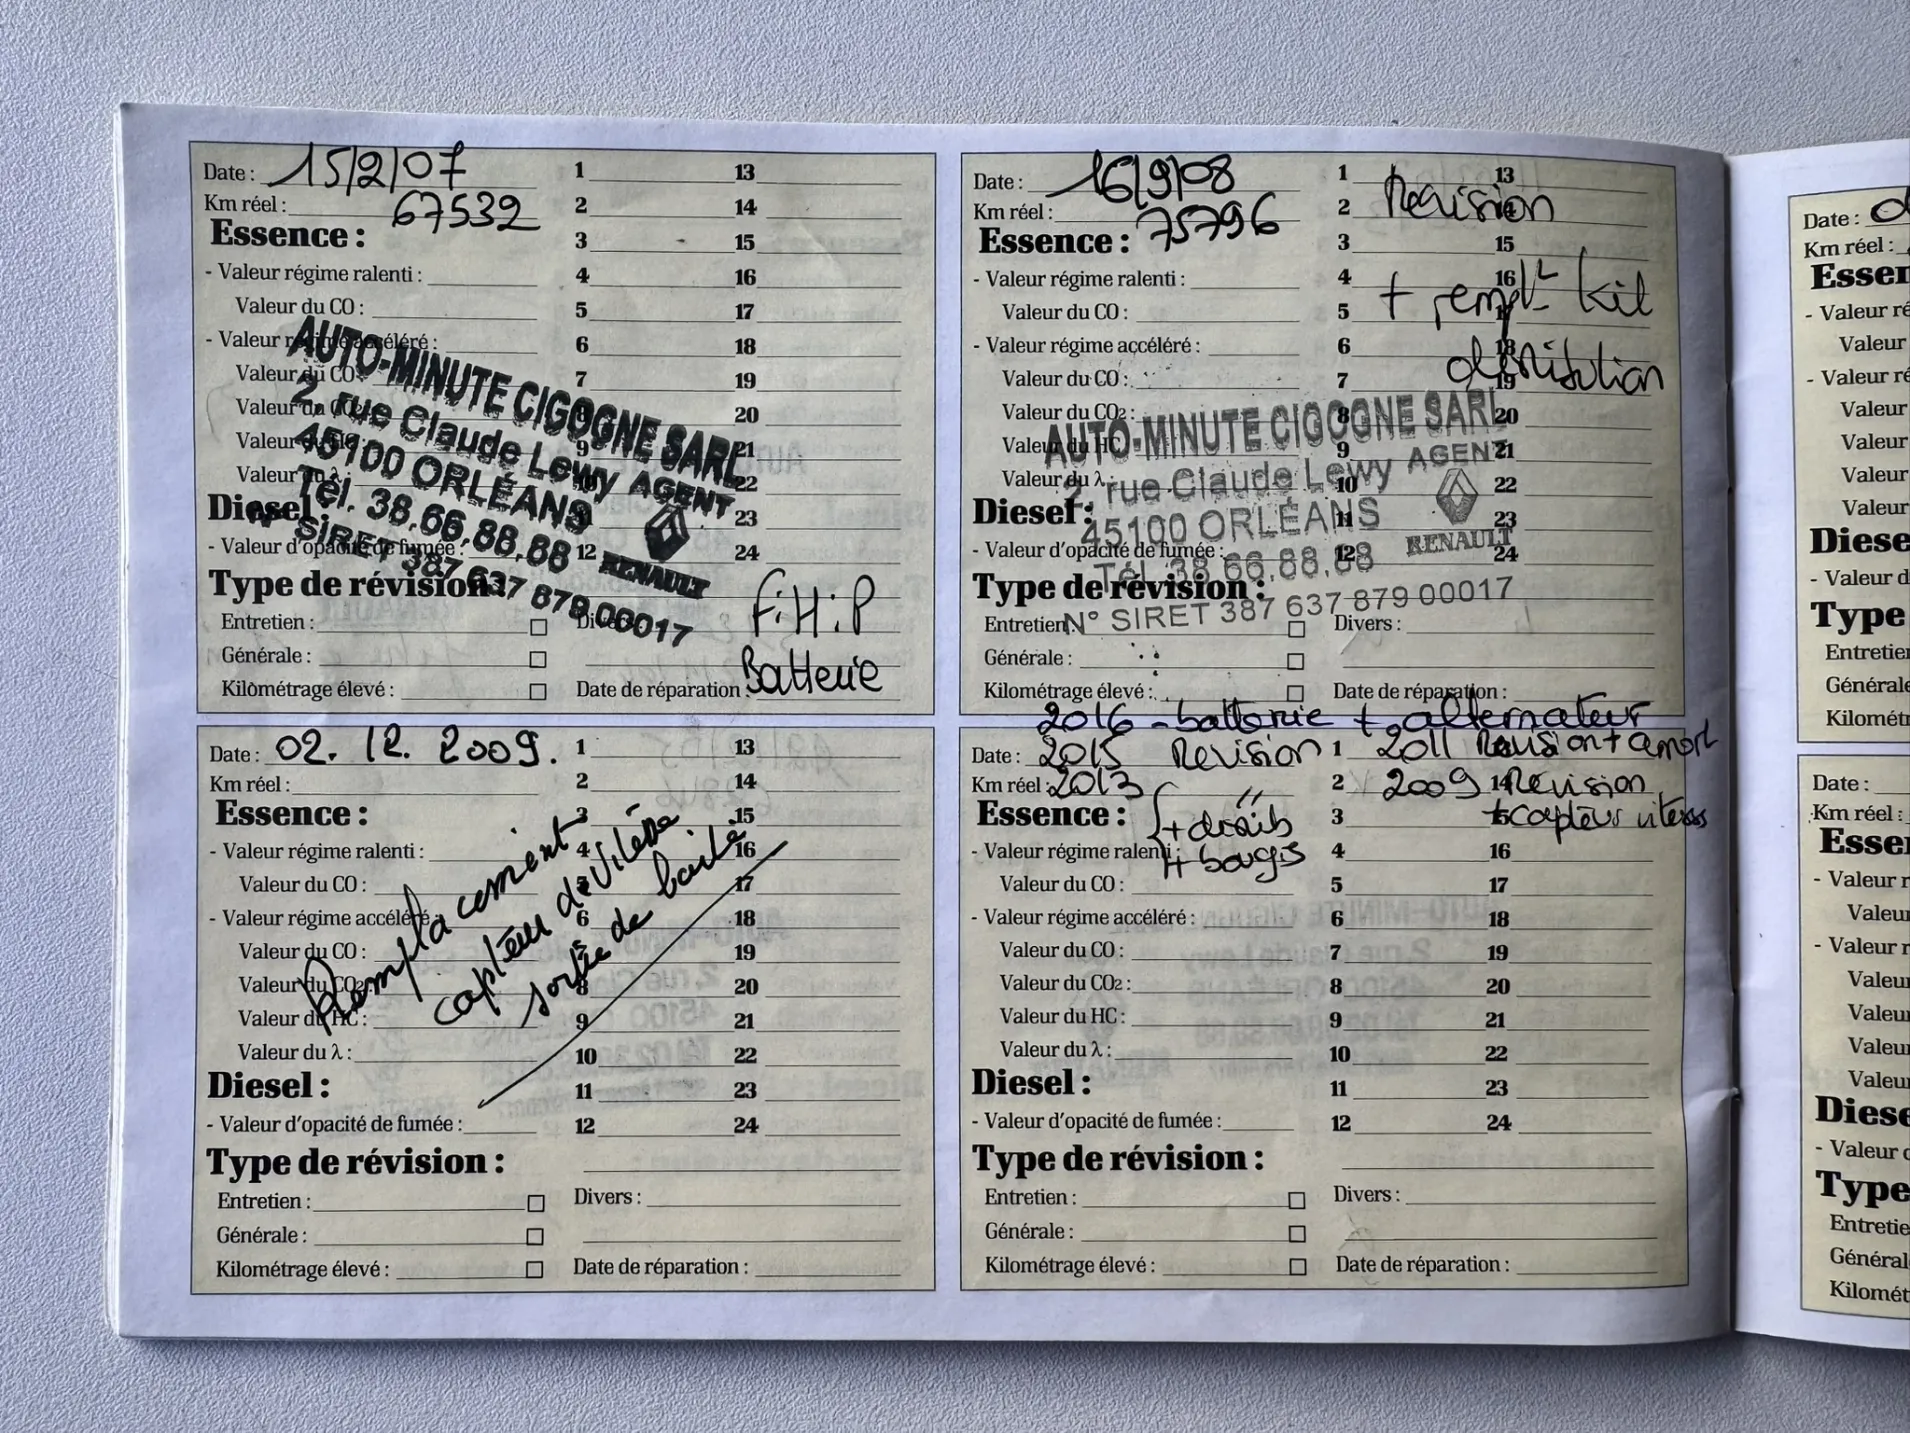 Date : 15/2/07
Km réel : 67532
Essence :
- Valeur régime ralenti :
Valeur du CO :
- Valeur régime accéléré :
Valeur du CO :
Valeur du CO2 :
Valeur du HC :
Valeur du λ :
Diesel :
- Valeur d'opacité de fumée :
Type de révision :
Entretien :
Générale :
Kilométrage élevé :
1 13
2 14
3 15
4 16
5 17
6 18
7 19
8 20
9 21
10 22
11 23
12 24
Divers :
F.H.P
Batterie
Date de réparation :
AUTO-MINUTE CIGOGNE SARL
2, rue Claude Lewy AGENT
45100 ORLÉANS
Tél. 38.66.88.88 RENAULT
N° SIRET 387 637 879 00017
Date : 16/9/08
Km réel : 75796
Essence :
- Valeur régime ralenti :
Valeur du CO :
- Valeur régime accéléré :
Valeur du CO :
Valeur du CO2 :
Valeur du HC
Valeur du λ :
Diesel :
- Valeur d'opacité de fumée :
Type de révision :
Entretien
Générale :
Kilométrage élevé :
1 13
2 14
3 15
4 16
5 17
6 18
7 19
8 20
9 21
10 22
11 23
12 24
Divers :
Date de réparation :
Revision
+ rempLt kit
distribution
AUTO-MINUTE CIGOGNE SARL
2, rue Claude Lewy AGENT
45100 ORLÉANS
Tél. 38.66.88.88 RENAULT
N° SIRET 387 637 879 00017
Date : 02.12.2009.
Km réel :
Essence :
- Valeur régime ralenti :
Valeur du CO :
- Valeur régime accéléré :
Valeur du CO :
Valeur du CO2 :
Valeur du HC :
Valeur du λ :
Diesel :
- Valeur d'opacité de fumée :
Type de révision :
Entretien :
Générale :
Kilométrage élevé :
1 13
2 14
3 15
4 16
5 17
6 18
7 19
8 20
9 21
10 22
11 23
12 24
Divers :
Date de réparation :
Remplacement
capteur de vitesse
sortie de boite
2016 - batterie + alternateur
Date : 2015 Revision
Km réel : 2013 "
+ 
+ bougis
2011 Revision + amort
2009 Revision
+ capteurs vitesses
Essence :
- Valeur régime ralenti :
Valeur du CO :
- Valeur régime accéléré :
Valeur du CO :
Valeur du CO2 :
Valeur du HC :
Valeur du λ :
Diesel :
- Valeur d'opacité de fumée :
Type de révision :
Entretien :
Générale :
Kilométrage élevé :
1
2 14
3 15
4 16
5 17
6 18
7 19
8 20
9 21
10 22
11 23
12 24
Divers :
Date de réparation :
Date :
Km réel :
Essen
- Valeur ré
Valeur
- Valeur ré
Valeur
Valeur
Valeur
Valeur
Diese
- Valeur d
Type
Entretie
Générale
Kilomét
Date :
Km réel :
Esse
- Valeur r
Valeu
- Valeur r
Valeu
Valeu
Valeu
Valeu
Diese
- Valeur
Type
Entretie
Général
Kilomét